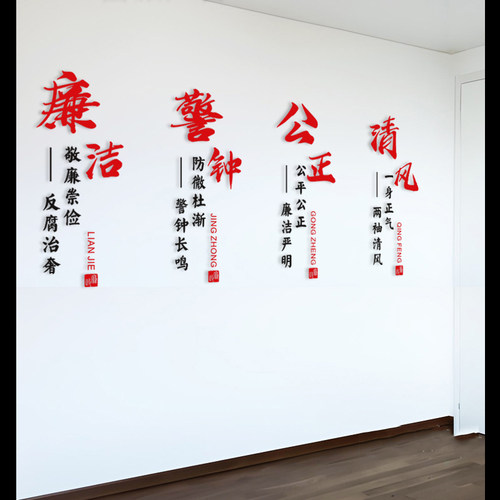 廉洁
敬廉崇俭
——反腐治奢
LIAN JIE
警钟
防微杜渐
——警钟长鸣
JING ZHONG
公正
公平公正
——廉洁严明
GONG ZHENG
清风
一身正气
——两袖清风
QING FENG